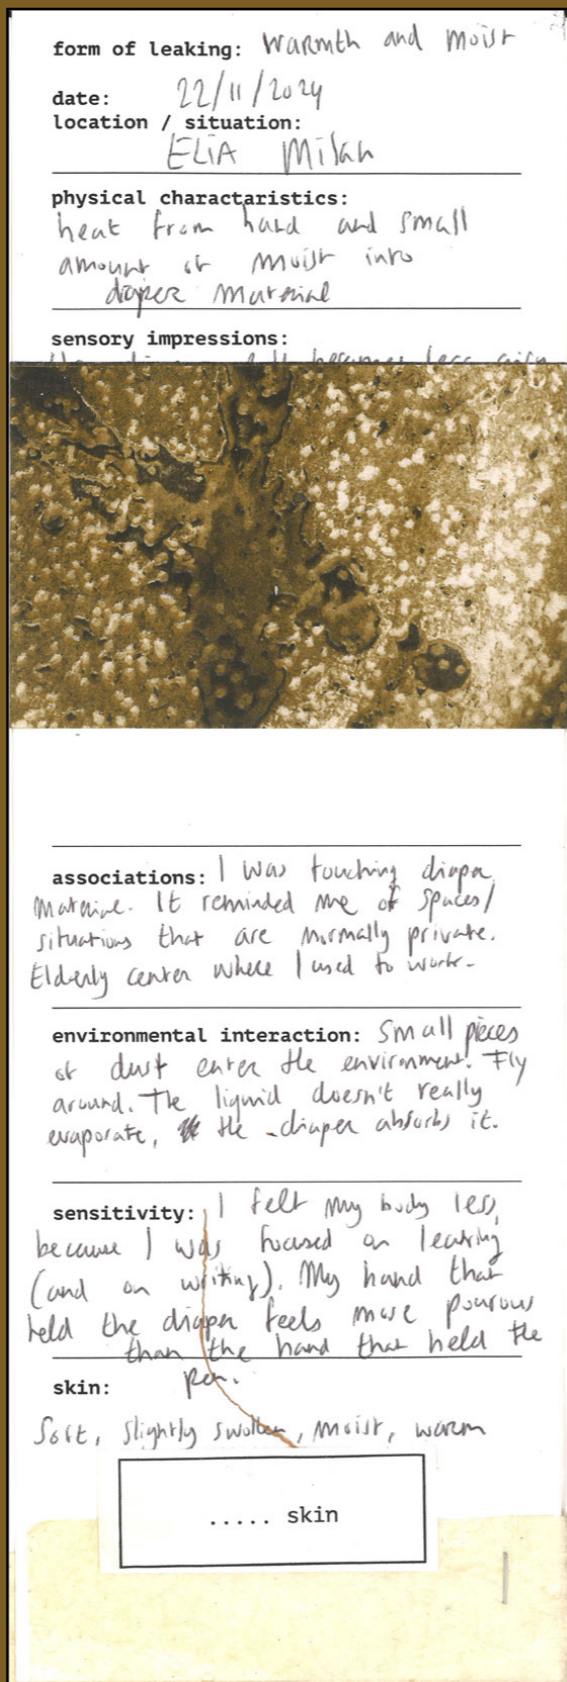 form of leaking: Warmth and moist
date: 22/11/2024
location / situation:
ELIA Milan
physical charactaristics:
heat from hand and small
amount of moist into
diaper material
sensory impressions:
becomes less airy
associations: I was touching diaper
material. It reminded me of spaces/
situations that are normally private.
Elderly center where I used to work.
environmental interaction: small pieces
of dust enter the environment. Fly
around. The liquid doesn't really
evaporate, the diaper absorbs it.
sensitivity: I felt my body less,
because I was focused on leaking
(and on writing). My hand that
held the diaper feels more pourous
than the hand that held the
pen.
skin:
Soft, slightly swollen, moist, warm
..... skin